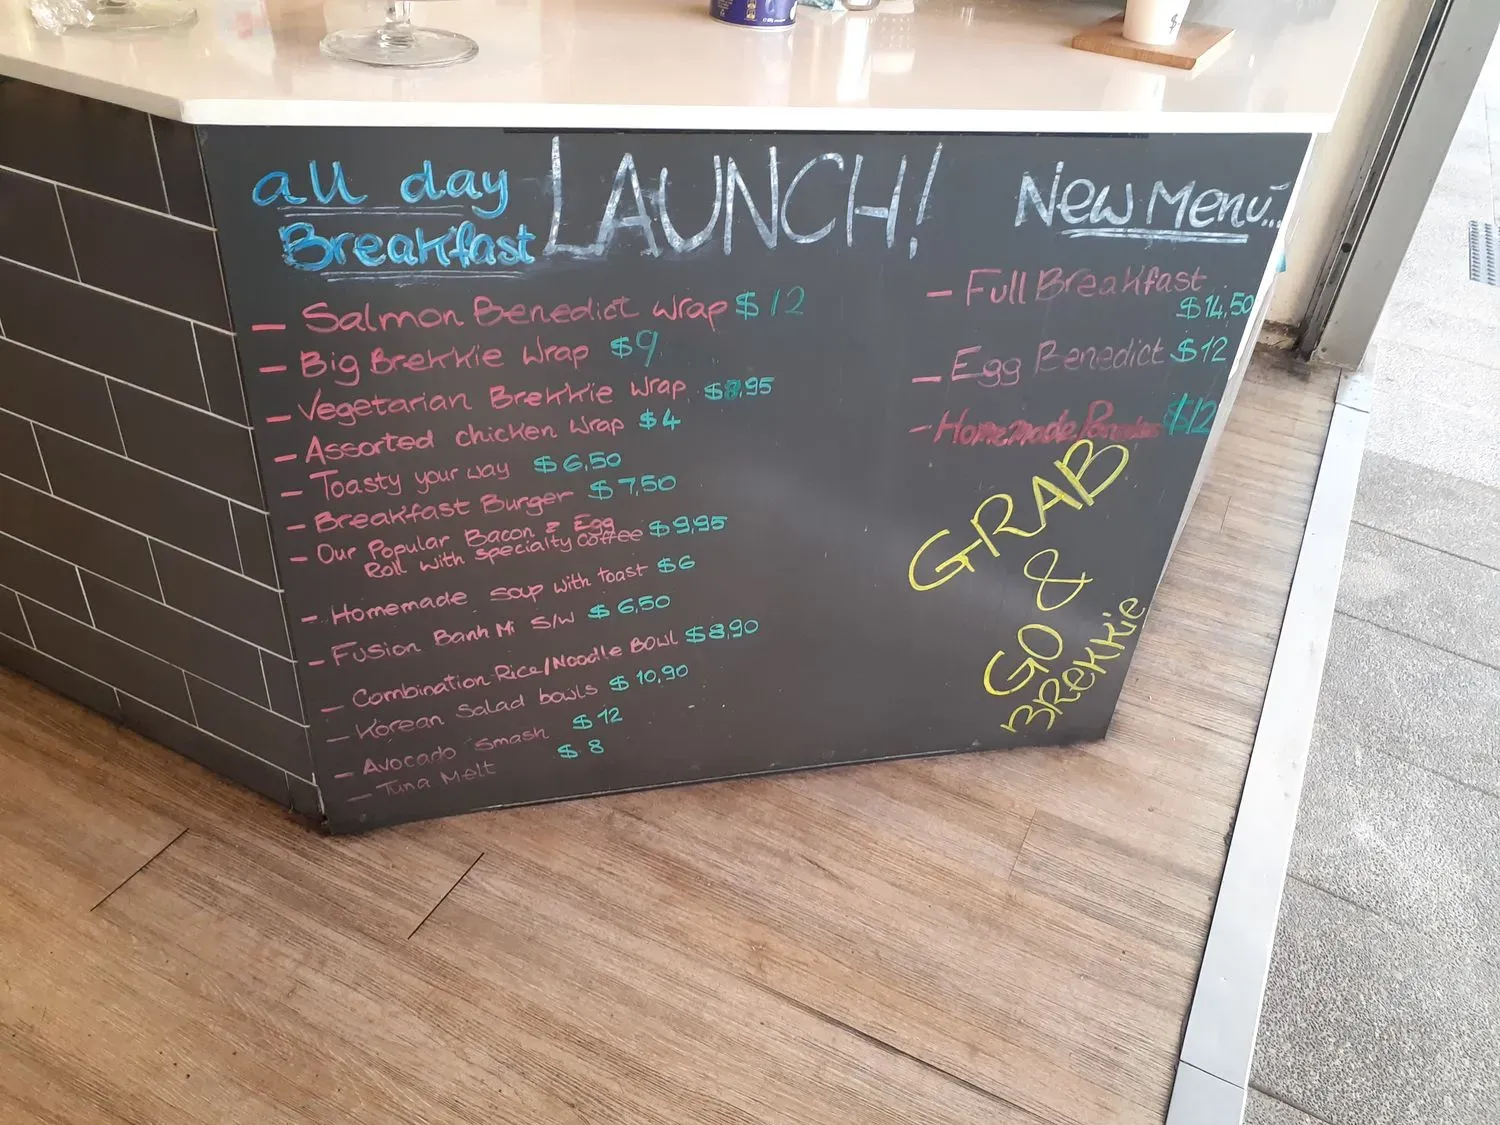 all day
Breakfast
LAUNCH!
New Menu...
- Salmon Benedict wrap $12
- Big Brekkie Wrap $9
- Vegetarian Brekkie Wrap $8.95
- Assorted chicken Wrap $4
- Toasty your way $6.50
- Breakfast Burger $7.50
- Our Popular Bacon & Egg
Roll with specialty coffee $9.95
- Homemade soup with toast $6
- Fusion Banh Mi S/W $6.50
- Combination Rice/Noodle Bowl $8.90
- Korean Salad bowls $10.90
- Avocado Smash $12
- Tuna Melt $8
- Full Breakfast
$14.50
- Egg Benedict $12
- Homemade $12
GRAB
&
GO
BREKKie
$